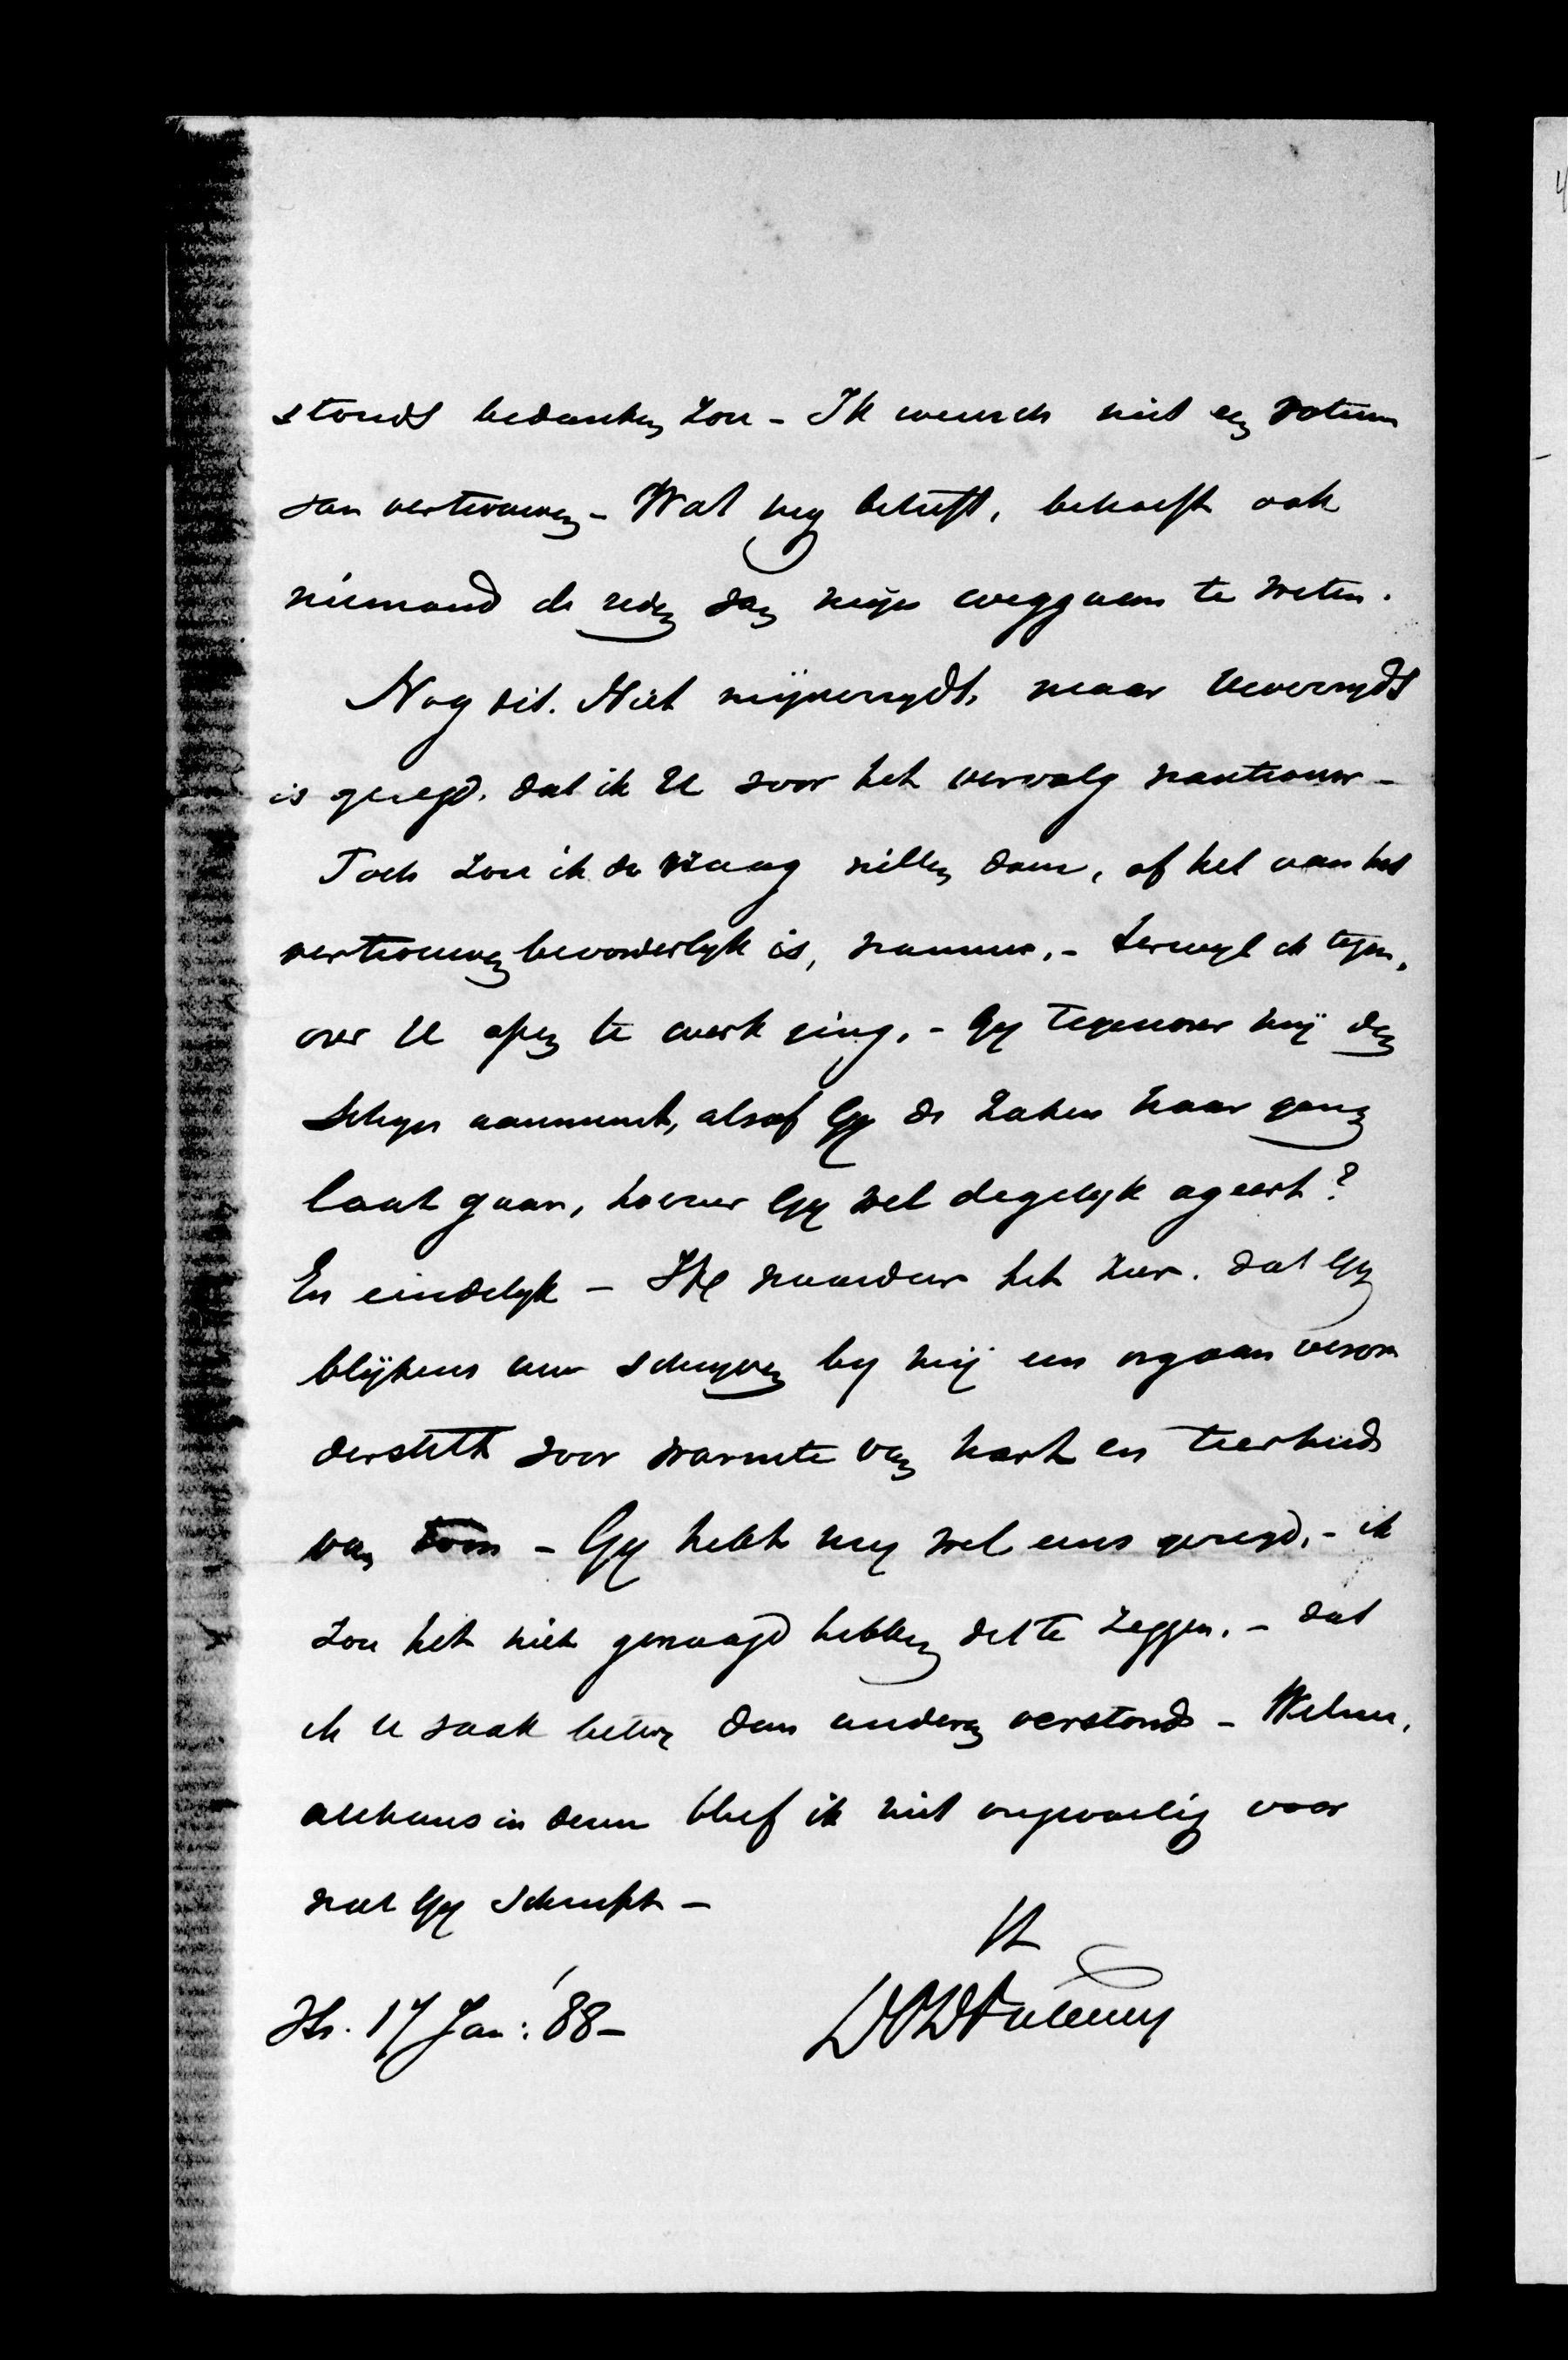 stonds bedanken zou - Ik wensch niet een votum
van vertrouwen - Wat my betreft, behoeft ook
niemand de reden van mijn weggaan te weten.
Nog dit. Niet mijnerzydts maar Uwerzydts
is gezegd, dat ik U voor het vervolg wantrouw -
Toch zou ik de vraag willen doen, of het aan het
vertrouwen bevorderlyk is, wanneer, - terwyl ik tegen,
over U open te werk ging, - Gy tegenover mij den
schyn aanneemt, alsof Gy de zaken haar gang
laat gaan, hoezeer Gy wel degelyk ageert?
En eindelyk - Ik waardeer het zeer, dat Gy
blijkens uw schryven by mij een orgaan veron
derstelt voor warmte van hart en teerheid
van toon - Gy hebt my wel eens gezegd, - ik
zou het niet gewaagd hebben dit te zeggen, - dat
ik U vaak beter dan anderen verstond - Welnu,
althans in dezen bleef ik niet ongevoelig voor
wat Gy schreeft -
17 Jan: '88 -